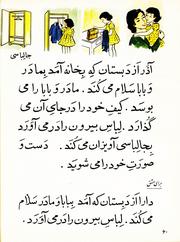 جالباسی
آذر از دبستان که بخانه آمد بمادر
و بابا سلام می کند . مادر و بابا را می
بوسد . کیفِ خود را در جای آن می
گذارد . لباسِ بیرون را در می آوَرَد
بجالباسی آویزان می کند . دست و
صورتِ خود را می شوید .
برای مشق
دارا از دبستان که آمد ببابا و مادر سلام
می کند . لباسِ بیرون را در می آوَرَد .
۶۰